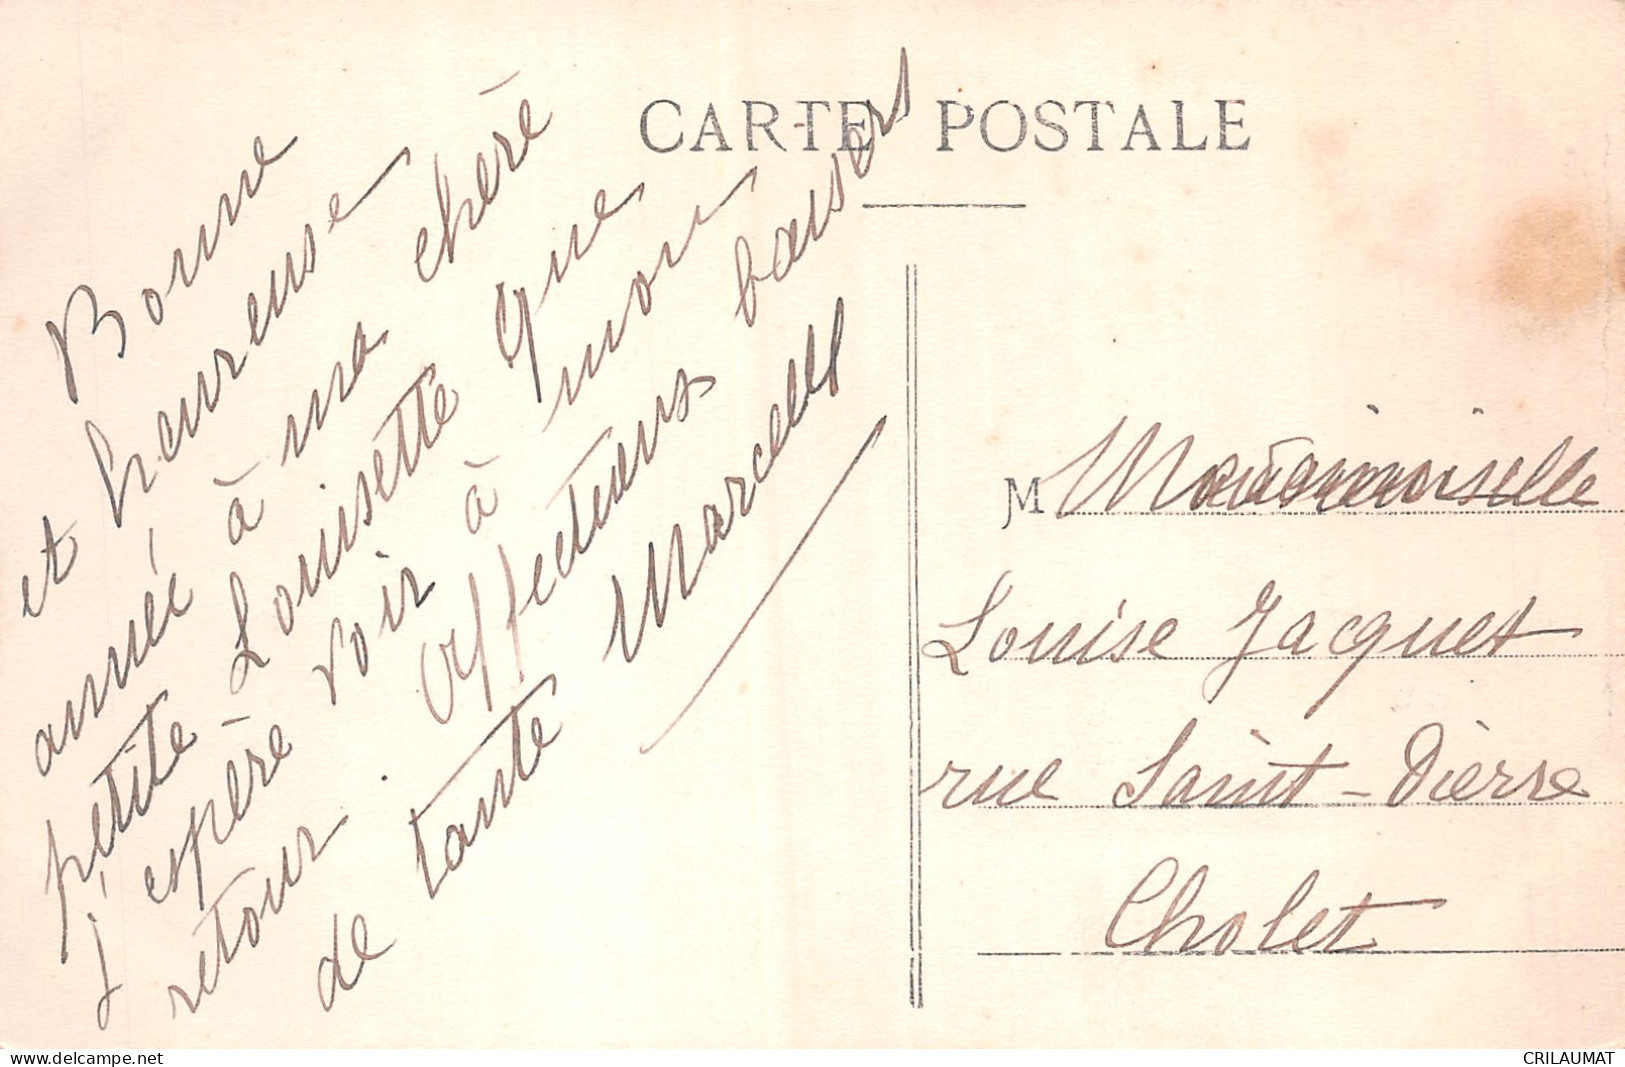 CARTE POSTALE
Bonne
et heureuse
année à ma chère
petite Louisette que
j'espère voir à mon
retour. Affectueux baisers
de tante Marcelle
M Mademoiselle
Louise Jacquet
rue Saint-Pierre
Cholet
www.delcampe.net
CRILAUMAT